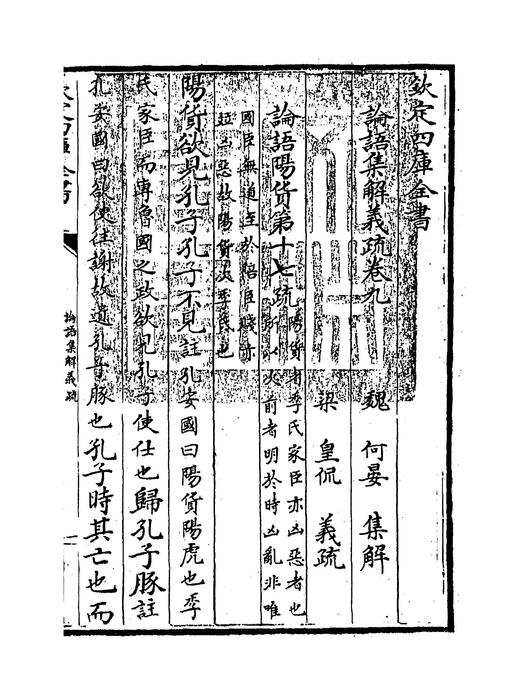 欽定四庫全書
論語集解義疏卷九
魏 何晏 集解
梁 皇侃 義疏
論語陽貨第十七疏陽貨者季氏家臣亦凶惡者也
所以次前者明於時凶亂非唯
國臣無道至於陪臣賤亦
凶惡故陽貨次季氏也
陽貨欲見孔子孔子不見註孔安國曰陽貨陽虎也季
氏家臣而專魯國之政欲見孔子使仕也歸孔子豚註
孔安國曰欲使往謝故遺孔子豚也孔子時其亡也而
論語集解義疏